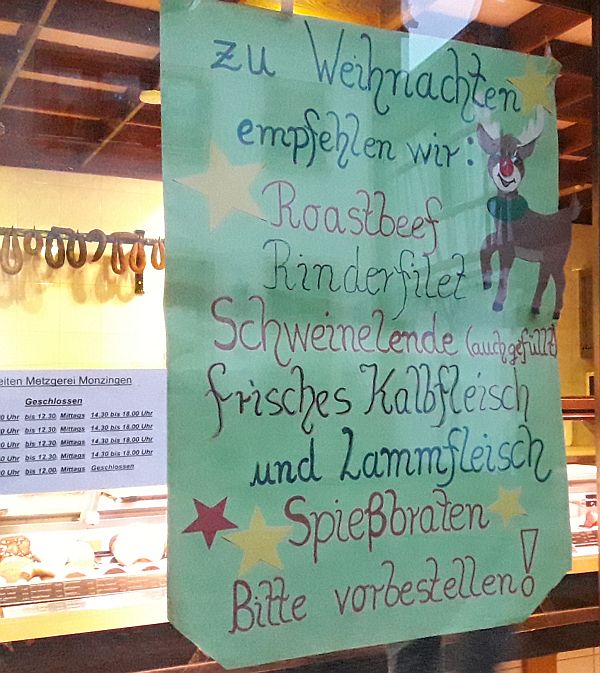 zu Weihnachten
empfehlen wir:
Roastbeef
Rinderfilet
Schweinelende (auch gefüllt)
frisches Kalbfleisch
und Lammfleisch
Spießbraten
Bitte vorbestellen!
eiten Metzgerei Monzingen
Geschlossen
0 Uhr bis 12.30. Mittags 14.30 bis 18.00 Uhr
0 Uhr bis 12.30. Mittags 14.30 bis 18.00 Uhr
0 Uhr bis 12.30. Mittags 14.30 bis 18.00 Uhr
0 Uhr bis 12.30. Mittags 14.30 bis 18.00 Uhr
0 Uhr bis 12.00. Mittags Geschlossen